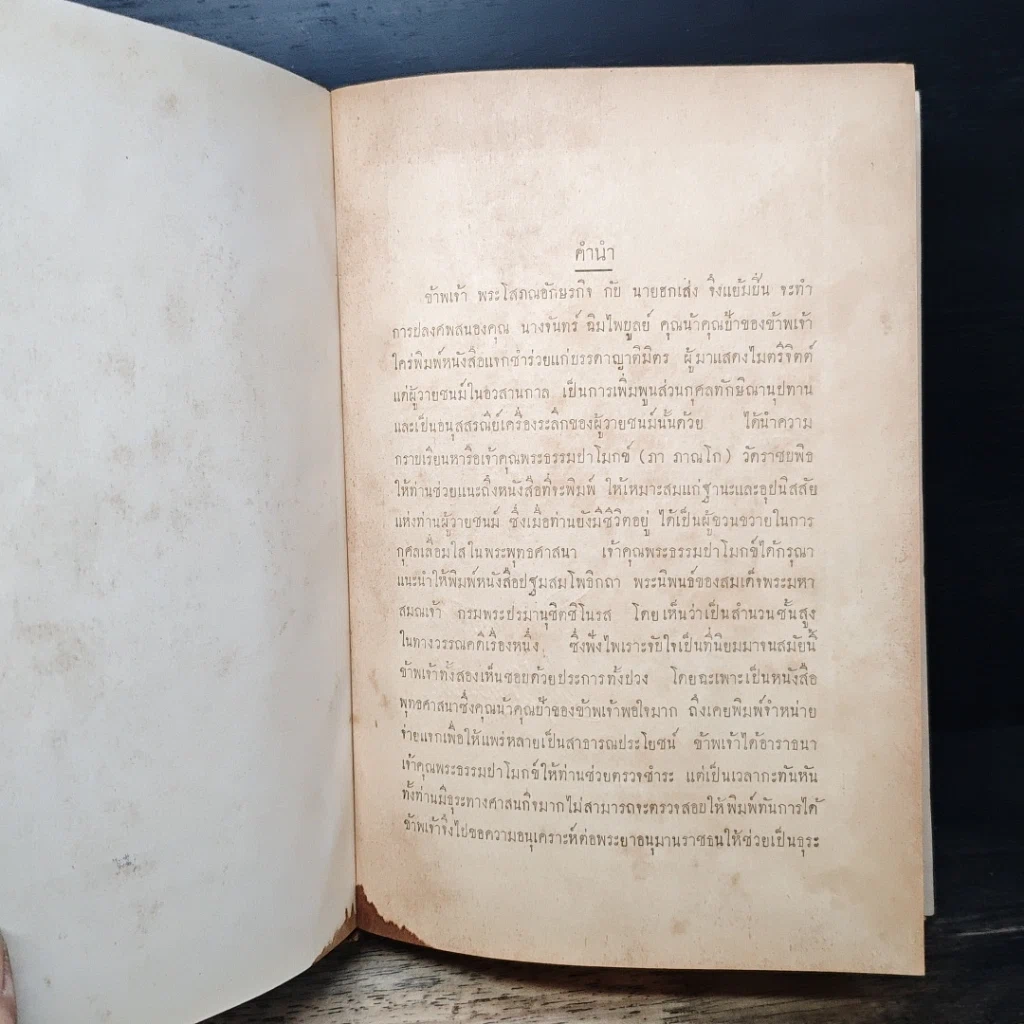 คำนำ
ข้าพเจ้า พระโสภณอักษรกิจ กับ นายฮกเส่ง จึงแย้มยิ้น จะทำ
การปลงศพสนองคุณ นางจันทร์ ฉิมไพบูลย์ คุณน้าคุณป้าของข้าพเจ้า
ใคร่พิมพ์หนังสือแจกชำร่วยแก่บรรดาญาติมิตร ผู้มาแสดงไมตรีจิตต์
แด่ผู้วายชนม์ในอวสานกาล เป็นการเพิ่มพูนส่วนกุศลทักษิณานุปทาน
และเป็นอนุสสรณีย์เครื่องระลึกของผู้วายชนม์นั้นด้วย ได้นำความ
กราบเรียนหารือเจ้าคุณพระธรรมปาโมกข์ (ภา ภาณโก) วัดราชบพิธ
ให้ท่านช่วยแนะถึงหนังสือที่จะพิมพ์ ให้เหมาะสมแก่ฐานะและอุปนิสสัย
แห่งท่านผู้วายชนม์ ซึ่งเมื่อท่านยังมีชีวิตอยู่ ได้เป็นผู้ขวนขวายในการ
กุศลเลื่อมใสในพระพุทธศาสนา เจ้าคุณพระธรรมปาโมกข์ได้กรุณา
แนะนำให้พิมพ์หนังสือปฐมสมโพธิกถา พระนิพนธ์ของสมเด็จพระมหา
สมณเจ้า กรมพระปรมานุชิตชิโนรส โดยเห็นว่าเป็นสำนวนชั้นสูง
ในทางวรรณคดีเรื่องหนึ่ง ซึ่งฟังไพเราะจับใจเป็นที่นิยมมาจนสมัยนี้
ข้าพเจ้าทั้งสองเห็นชอบด้วยประการทั้งปวง โดยฉะเพาะเป็นหนังสือ
พุทธศาสนาซึ่งคุณน้าคุณป้าของข้าพเจ้าพอใจมาก ถึงเคยพิมพ์จำหน่าย
จ่ายแจกเพื่อให้แพร่หลายเป็นสาธารณประโยชน์ ข้าพเจ้าได้อาราธนา
เจ้าคุณพระธรรมปาโมกข์ให้ท่านช่วยตรวจชำระ แต่เป็นเวลากะทันหัน
ทั้งท่านมีธุระทางศาสนกิจมากไม่สามารถจะตรวจสอบให้พิมพ์ทันการได้
ข้าพเจ้าจึงไปขอความอนุเคราะห์ต่อพระยาอนุมานราชธนให้ช่วยเป็นธุระ